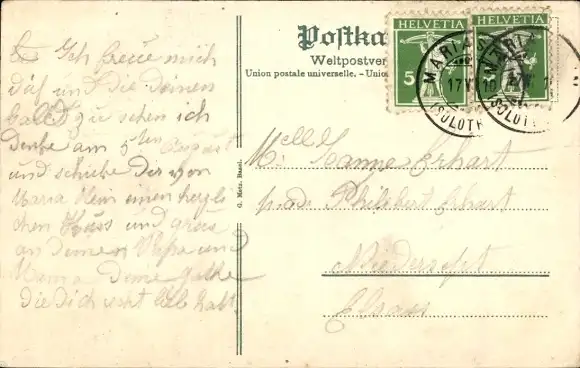 Ich freue mich
daß und die deinen
bald zu sehen ich
denke am 5ten August
und schicke Dir von
Maria Stein einen herzli
chen Kuss und grus
an deinen Papa und
Mama Deine Gothe
die Dich lieb habt.
Postka
Weltpostver
Union postale universelle. – Unio
HELVETIA
HELVETIA
5
MARIAS
17 V
10
(SOLOTH
MARIA
SOLOTH
G. Metz, Basel.
Mell Jeanne Erhart
Philibert Erhart
Niedersept
Elsass